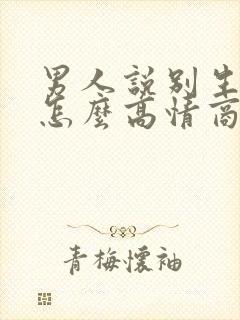 男人説别生
怎麼高情商
青梅懷袖